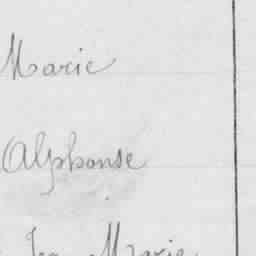 Marie
Alphonse
Marie